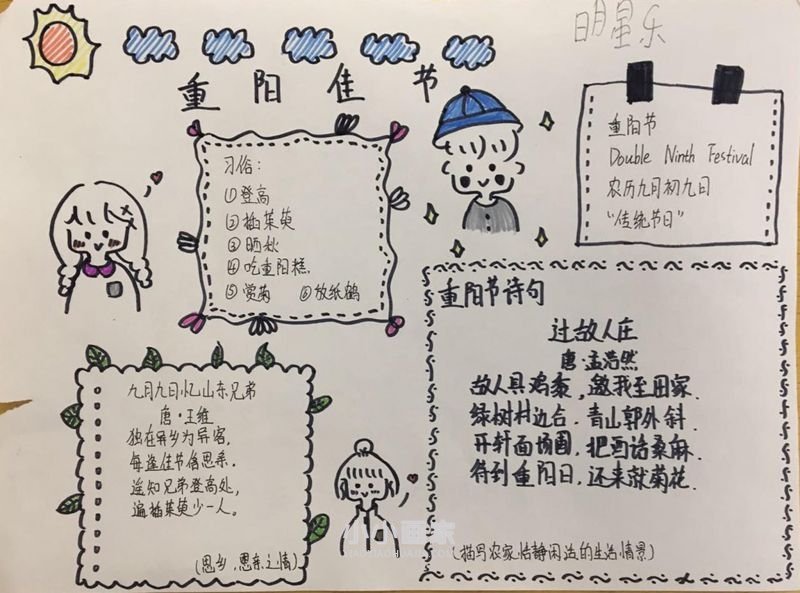 明星乐
重阳佳节
习俗：
①登高
②插茱萸
③晒秋
④吃重阳糕.
⑤赏菊 ⑥放纸鹤
重阳节
Double Ninth Festival
农历九月初九日
“传统节日”
重阳节诗句
过故人庄
唐·孟浩然
故人具鸡黍，邀我至田家.
绿树村边合.青山郭外斜.
开轩面场圃，把酒话桑麻.
待到重阳日，还来就菊花.
(描写农家恬静闲适的生活情景)
九月九日忆山东兄弟
唐·王维
独在异乡为异客，
每逢佳节倍思亲.
遥知兄弟登高处，
遍插茱萸少一人。
(思乡，思亲之情)
小小画家